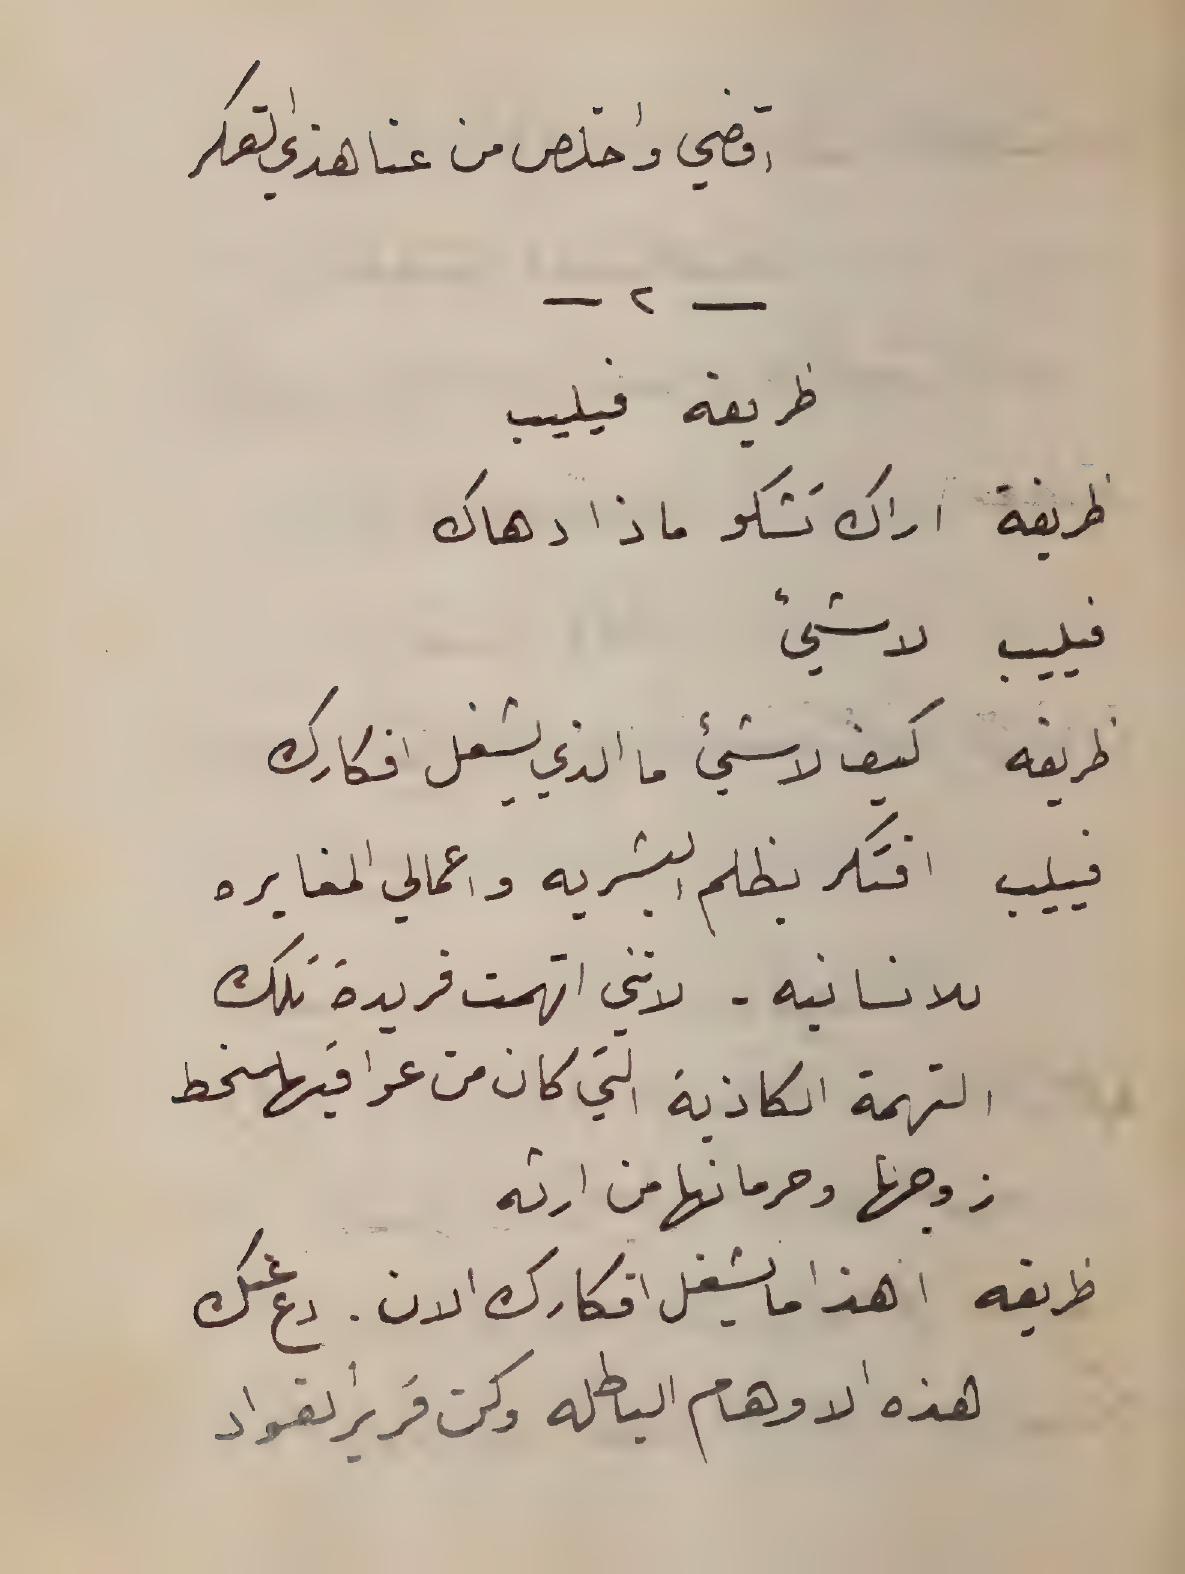 اقضي واخلص من عنا هذي التعكر
— ٢ —
ظريفة فيليب
ظريفة اراك تشكو ماذا دهاك
فيليب لا شيئ
ظريفه كيف لا شيئ ما الذي يشغل افكارك
فيليب افتكر بظلم البشريه واعمالي المغايره
للانسانيه - لانني اتهمت فريدة تلك
التهمة الكاذبة التي كان من عواقبها سخط
زوجها وحرمانها من ارثه
ظريفه اهذا ما يشغل افكارك الان . دع عنك
هذه الاوهام الباطله وكن قرير الفواد